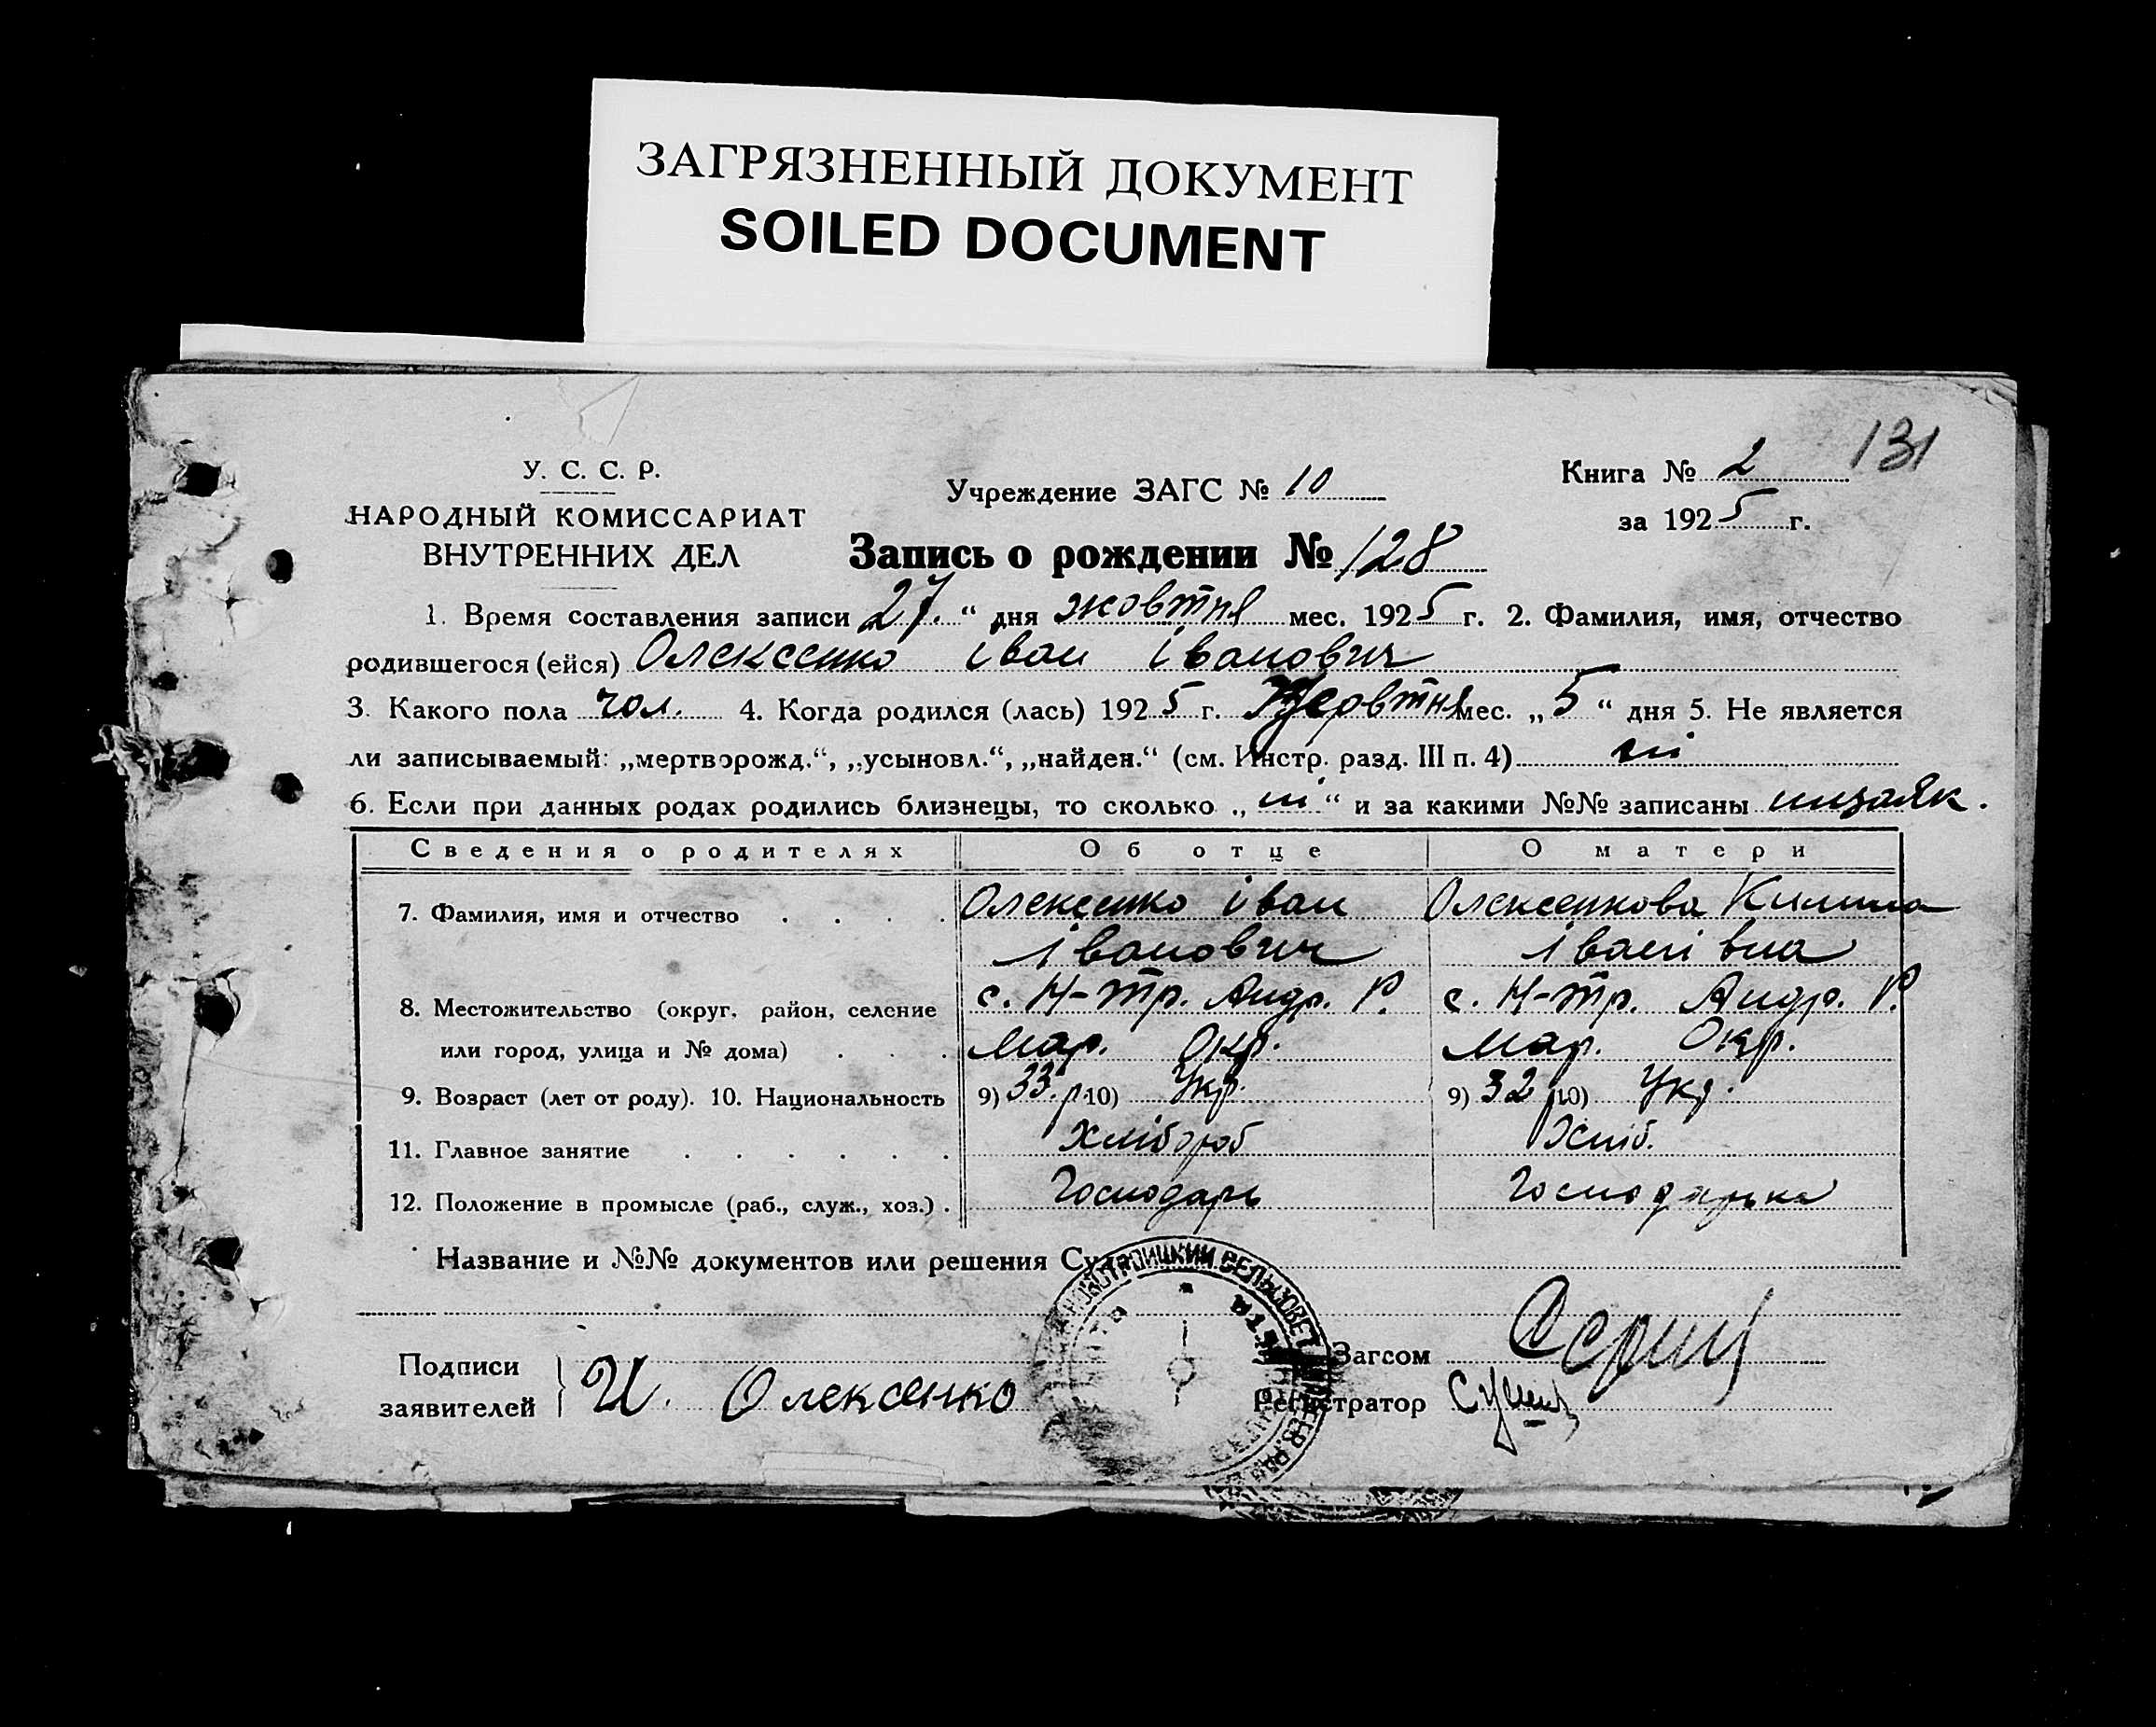 ЗАГРЯЗНЕННЫЙ ДОКУМЕНТ
SOILED DOCUMENT
131
У. С. С. Р.
НАРОДНЫЙ КОМИССАРИАТ
ВНУТРЕННИХ ДЕЛ
Учреждение ЗАГС № 10
Книга № 2
за 1925 г.
Запись о рождении № 128
1. Время составления записи 27. “ дня жовтня мес. 1925 г. 2. Фамилия, имя, отчество
родившегося (ейся) Олексенко іван іванович
3. Какого пола чол. 4. Когда родился (лась) 1925 г. Жовтня мес. „5“ дня 5. Не является
ли записываемый: „мертворожд.“, „усыновл.“, „найден.“ (см. Инстр. разд. III п. 4) ні
6. Если при данных родах родились близнецы, то сколько „ні“ и за какими №№ записаны низаяк.
Сведения о родителях Об отце О матери
7. Фамилия, имя и отчество . . . . Олексенко іван Олексенкова Килина
іванович івані вна
8. Местожительство (округ, район, селение с. Н-тр. Андр. Р. с. Н-тр. Андр. Р.
или город, улица и № дома) . . . Мар. Окр. Мар. Окр.
9. Возраст (лет от роду). 10. Национальность 9) 33 р. 10) Укр. 9) 32 р. 10) Укр.
11. Главное занятие . . . . . . Хлібороб Хліб.
12. Положение в промысле (раб., служ., хоз.) . Господарь Господарька
Название и №№ документов или решения Суда
НОВОТРОИЦКИЙ СЕЛЬСОВЕТ АНДРЕЕВ. РАЙ
Подписи
заявителей
И. Олексенко
Загсом
Регистратор